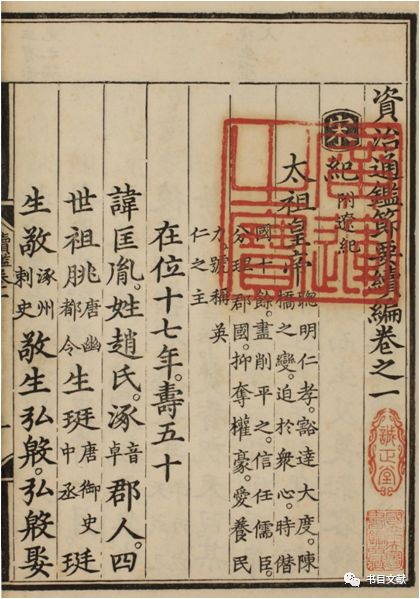 資治通鑑節要續編卷之一
宋紀 附遼紀
太祖皇帝 聰明仁孝。豁達大度。陳
橋之變。迫於衆心。時僭
國十餘。盡削平之。信任儒臣。
分理郡國。抑奪權豪。愛養民
力。號稱英
仁之主
在位十七年。壽五十
諱匡胤。姓趙氏。涿音卓郡人。四
世祖朓唐幽都令生珽唐御史中丞珽
生敬涿州刺史敬生弘殷。弘殷娶
誠正堂
书目文献